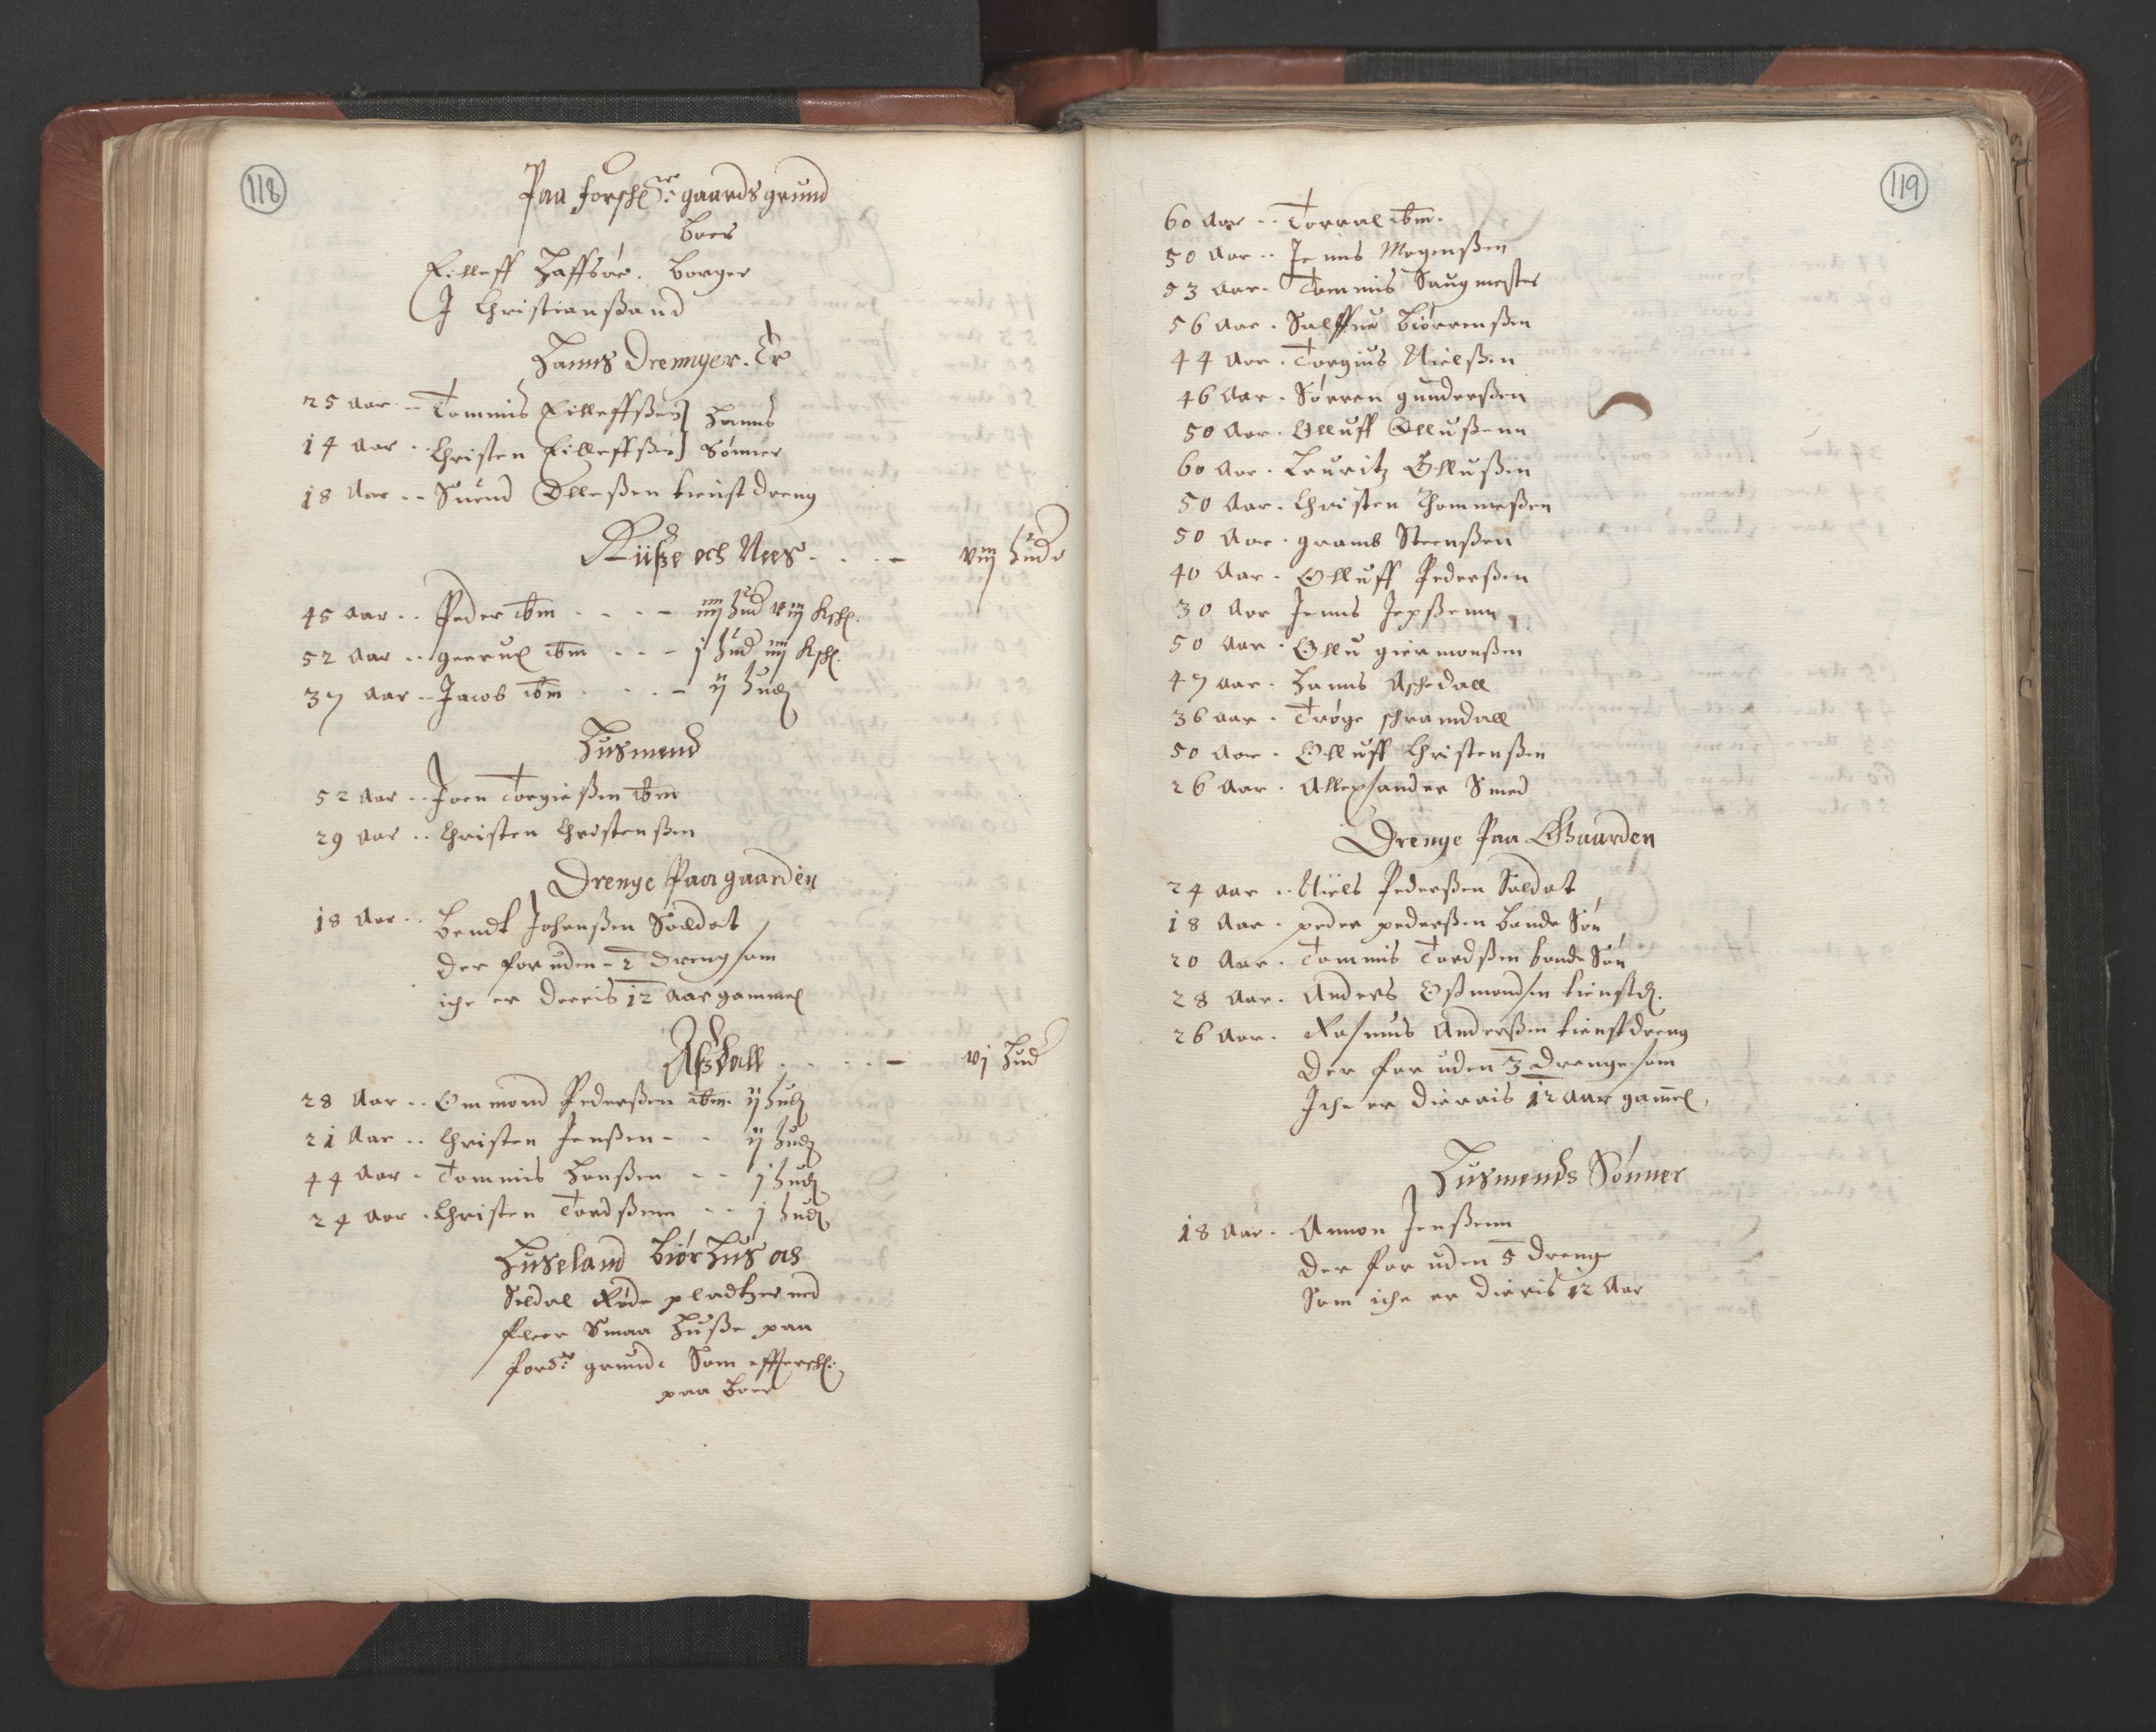 118
Paa forschr: gaards grund
boer
Eilleff Haffsøe. borger
J Christianßand
Hanns Drennger. Er
25 Aar .. Tommis Eilleffßen] Hanns
14 Aar .. Christen Eilleffßen] Sønner
18 Aar .. Suend Olleßen tienst dreng
och Nees . . . - viij huder
45 aar .. Peder ibm . . . - iiij hud viij Ksch.
52 Aar .. ibm . . . - j hud iiij Ksch.
37 aar .. Jacob ibm . . . - ij hud
Husmend
52 Aar .. Joen Torgießen ibm
29 Aar .. Christen Christenßen
Drenge Paa gaarden
18 Aar .. Bendt Johanßen Soldat
der for uden - 2 dreng som
iche er derris 12 Aar gammel
. . . . - vj hud
28 Aar .. Ommond Pederßen ibm. ij hud
21 Aar .. Christen Jenßen - - ij hud
44 Aar . Tommis Hanßen - - j hud
24 Aar . Christen Tordßenn - - j hud
Huseland Biør Hus os
Seldal Røde pladtzer med
fleer Smaa Huße paa
fordr: grund. Som effterschr:
paa boer
119
60 Aar .. Torval ibm.
50 Aar .. Jenns Mogenßen
53 Aar . Tommis Saugmester
56 Aar . Salffue Biørenßen
44 Aar . Torgius Nielßen
46 Aar . Sørren gunderßen
50 Aar . Olluff Ollußenn
60 Aar . Lauritz Ollußen
50 Aar . Christen Thommeßen
50 Aar . Steenßen
40 Aar . Olluff Pederßen
30 Aar Jenns Jepßenn
50 Aar . Ollu giermonßen
47 aar . Hanns Aschedall
36 aar . Trøge schramdall
50 Aar . Olluff Christenßen
26 Aar . Allexander Smed
Drenge Paa Gaarden
24 Aar .. Niels Pederßen Soldat
18 Aar . peder pederßen bonde Søn
20 Aar . Tommis Tordßen bonde Søn
28 Aar . Anders Oßmondsen tienstd.
26 Aar . Rasmus Anderßen tienstdreng
der for uden 3 drenge som
Iche er dierris 12 aar gammel,
Husmends Sønner
18 Aar .. Amon Jenßenn
der for uden 5 dreng
Som iche er dieris 12 Aar